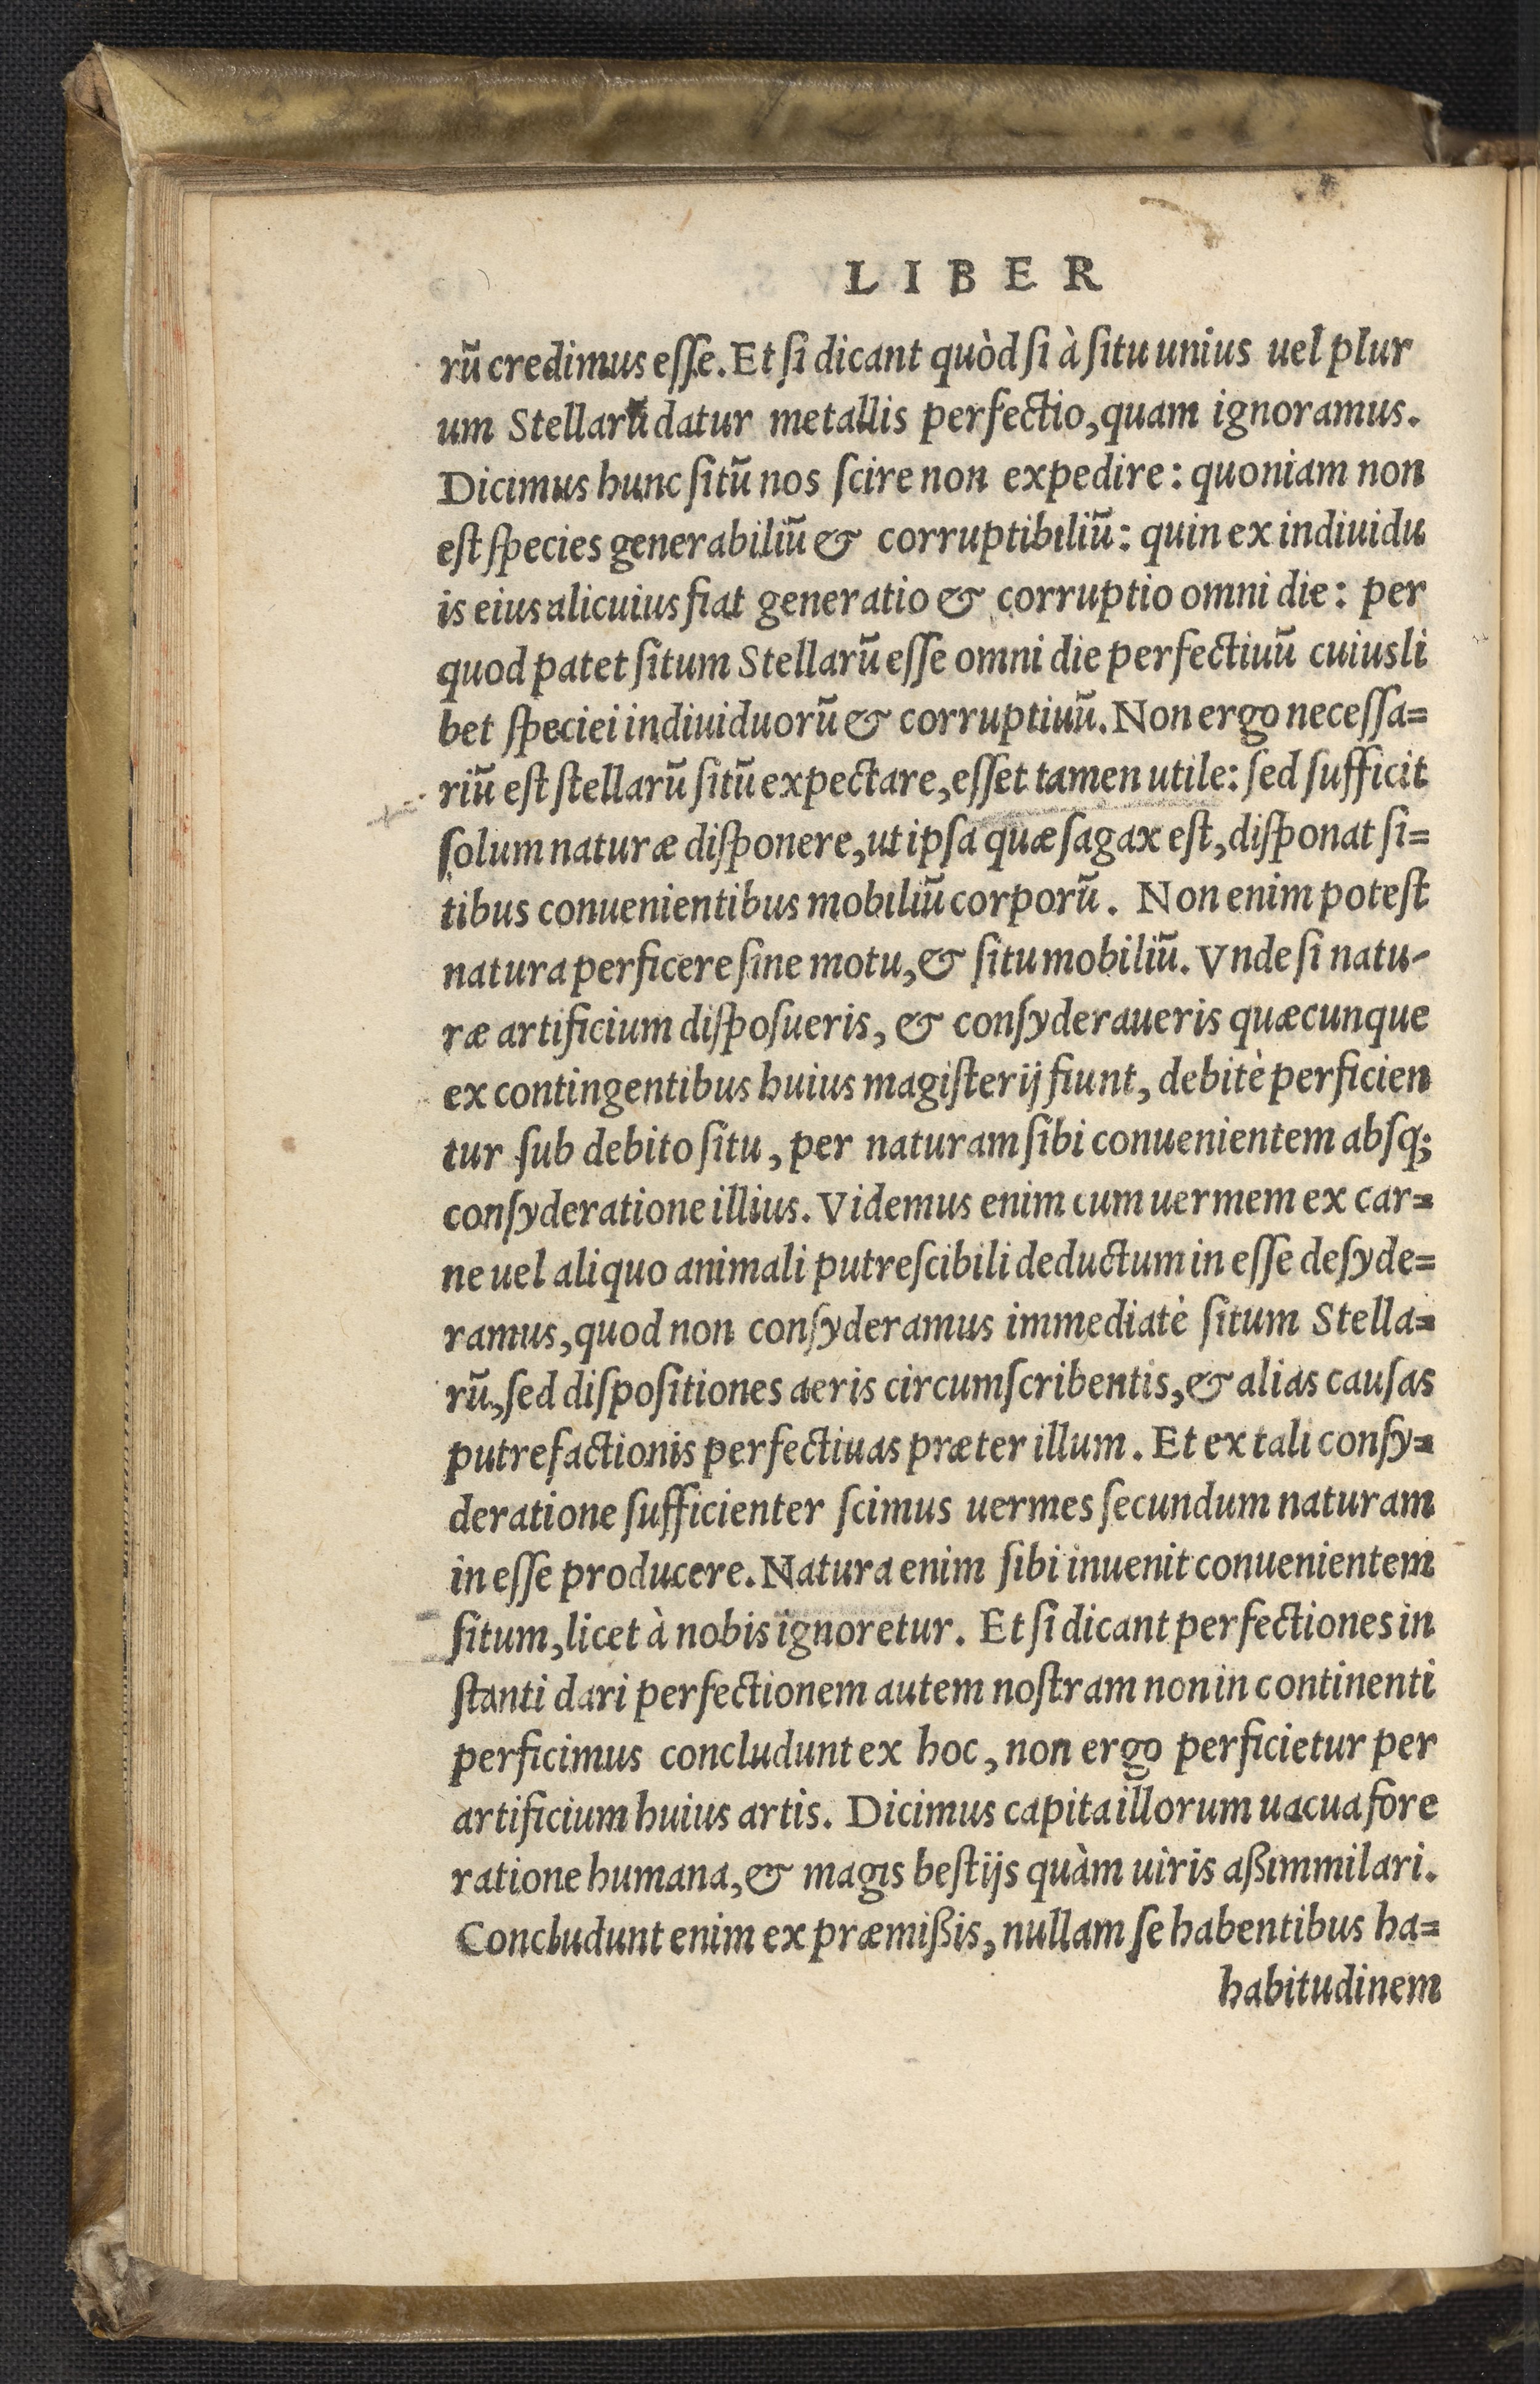 LIBER
rū credimus eſſe. Et ſi dicant quòd ſi à ſitu unius uel plur
um Stellarū datur metallis perfectio, quam ignoramus.
Dicimus hunc ſitū nos ſcire non expedire: quoniam non
eſt ſpecies generabiliū & corruptibiliū: quin ex indiuidu
is eius alicuius fiat generatio & corruptio omni die: per
quod patet ſitum Stellarū eſſe omni die perfectiuū cuiusli
bet ſpeciei indiuiduorū & corruptiuū. Non ergo neceſſa=
riū eſt ſtellarū ſitū expectare, eſſet tamen utile: ſed ſufficit
ſolum naturæ diſponere, ut ipſa quæ ſagax eſt, diſponat ſi=
tibus conuenientibus mobiliū corporū. Non enim poteſt
natura perficere ſine motu, & ſitu mobiliū. Vnde ſi natu-
ræ artificium diſpoſueris, & conſyderaueris quæcunque
ex contingentibus huius magiſterij fiunt, debitè perficien
tur ſub debito ſitu, per naturam ſibi conuenientem abſq;
conſyderatione illius. Videmus enim cum uermem ex car=
ne uel aliquo animali putreſcibili deductum in eſſe deſyde=
ramus, quod non conſyderamus immediatè ſitum Stella=
rū, ſed diſpoſitiones aeris circumſcribentis, & alias cauſas
putrefactionis perfectiuas præter illum. Et ex tali conſy=
deratione ſufficienter ſcimus uermes ſecundum naturam
in eſſe producere. Natura enim ſibi inuenit conuenientem
ſitum, licet à nobis ignoretur. Et ſi dicant perfectiones in
ſtanti dari perfectionem autem noſtram non in continenti
perficimus concludunt ex hoc, non ergo perficietur per
artificium huius artis. Dicimus capita illorum uacua fore
ratione humana, & magis beſtijs quàm uiris aßimmilari.
Concludunt enim ex præmißis, nullam ſe habentibus ha=
habitudinem